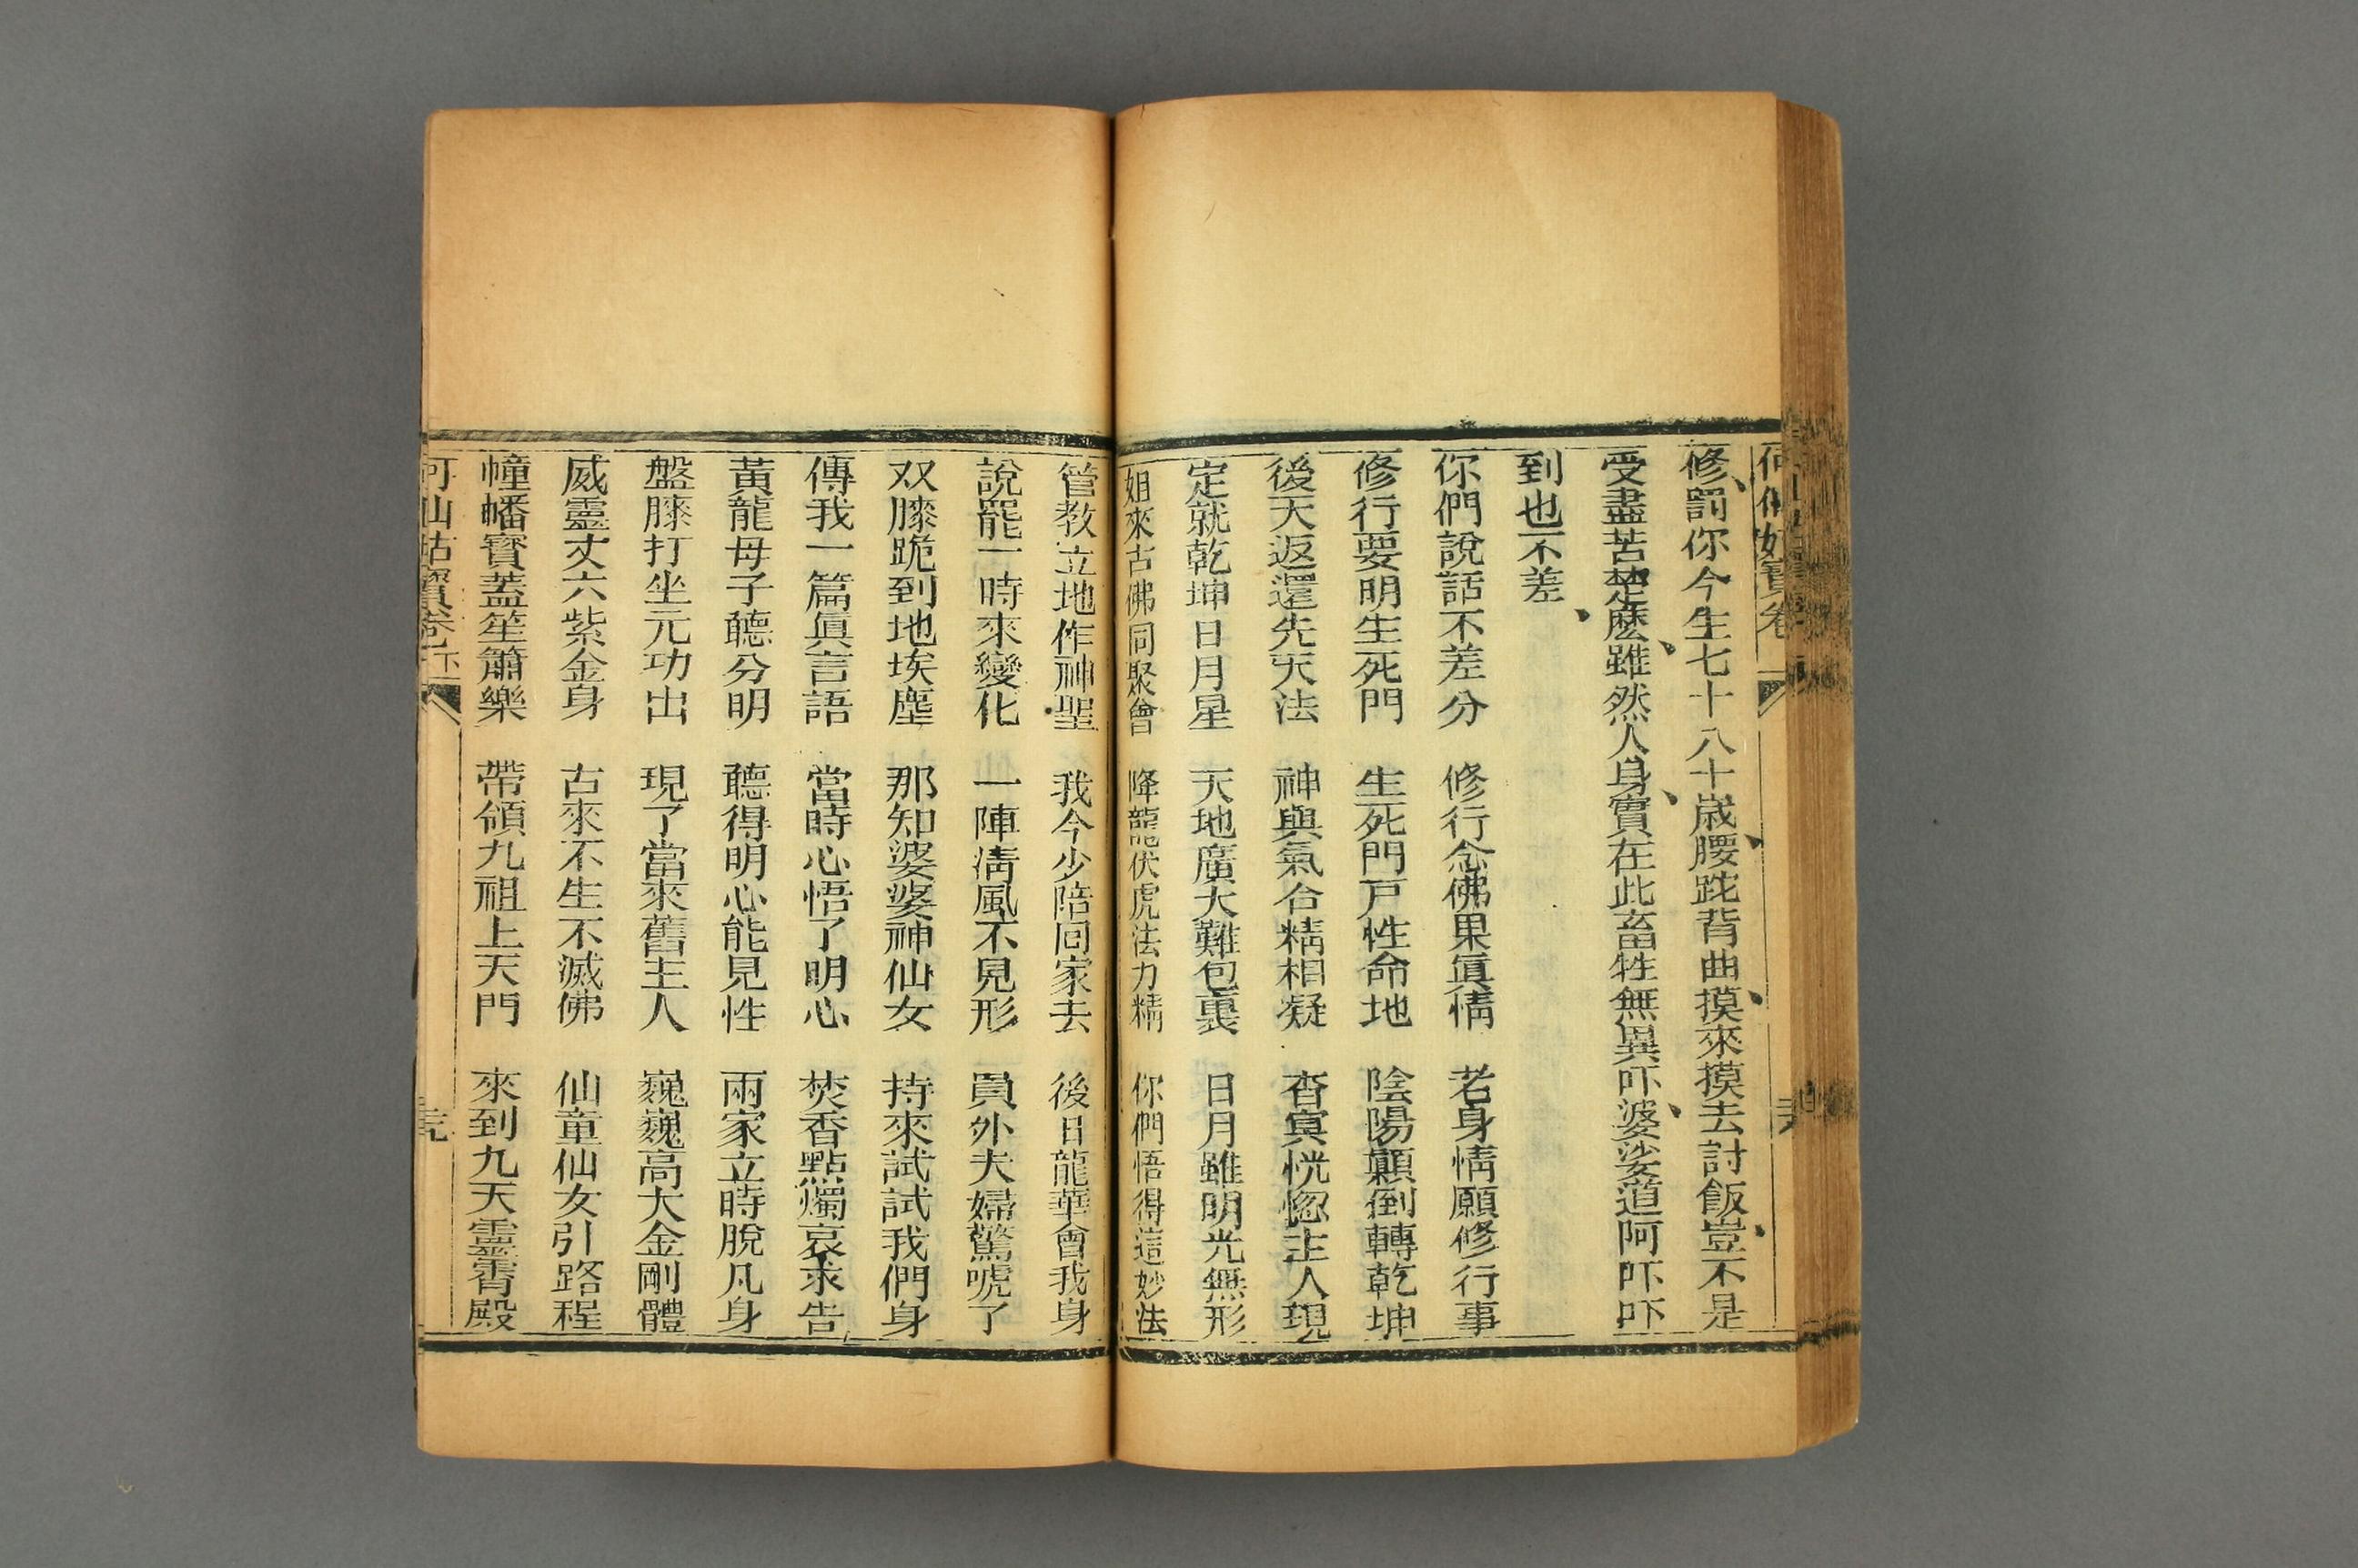 何仙姑寶卷
修罰你今生七十八十歲腰跎背曲摸來摸去討飯豈不是
受盡苦楚麽雖然人身實在此畜牲無異吓婆娑道阿吓吓
到也不差
你們說話不差分 修行念佛果眞情 若身情願修行事
修行要明生死門 生死門戸性命地 陰陽顚倒轉乾坤
後天返還先天法 神與氣合精相凝 杳冥恍惚主人現
定就乾坤日月星 天地廣大難包裏 日月雖明光無形
姐來古佛同聚會 降龍伏虎法力精 你們悟得這妙法
管教立地作神聖 我今少陪回家去 後日龍華會我身
說罷一時來變化 一陣淸風不見形 員外夫婦驚唬了
双膝跪到地埃塵 那知婆婆神仙女 持來試試我們身
傳我一篇眞言語 當時心悟了明心 焚香點燭哀求告
黃龍母子聽分明 聽得明心能見性 兩家立時脫凡身
盤膝打坐元功出 現了當來舊主人 巍巍高大金剛體
威靈丈六紫金身 古來不生不滅佛 仙童仙女引路程
幢幡寶蓋笙簫樂 帶領九祖上天門 來到九天靈霄殿
何仙姑寶卷下